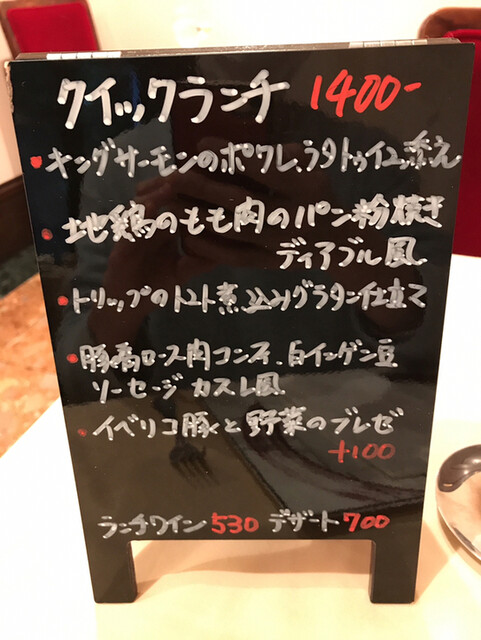 クイックランチ 1400-
・キングサーモンのポワレ、ラタトゥイユ添え
・地鶏のもも肉のパン粉焼き
ディアブル風
・トリップのトマト煮込みグラタン仕立て
・豚肩ロース肉コンフィ、白インゲン豆
ソーセージ カスレ風
・イベリコ豚と野菜のブレゼ
+100
ランチワイン 530 デザート 700